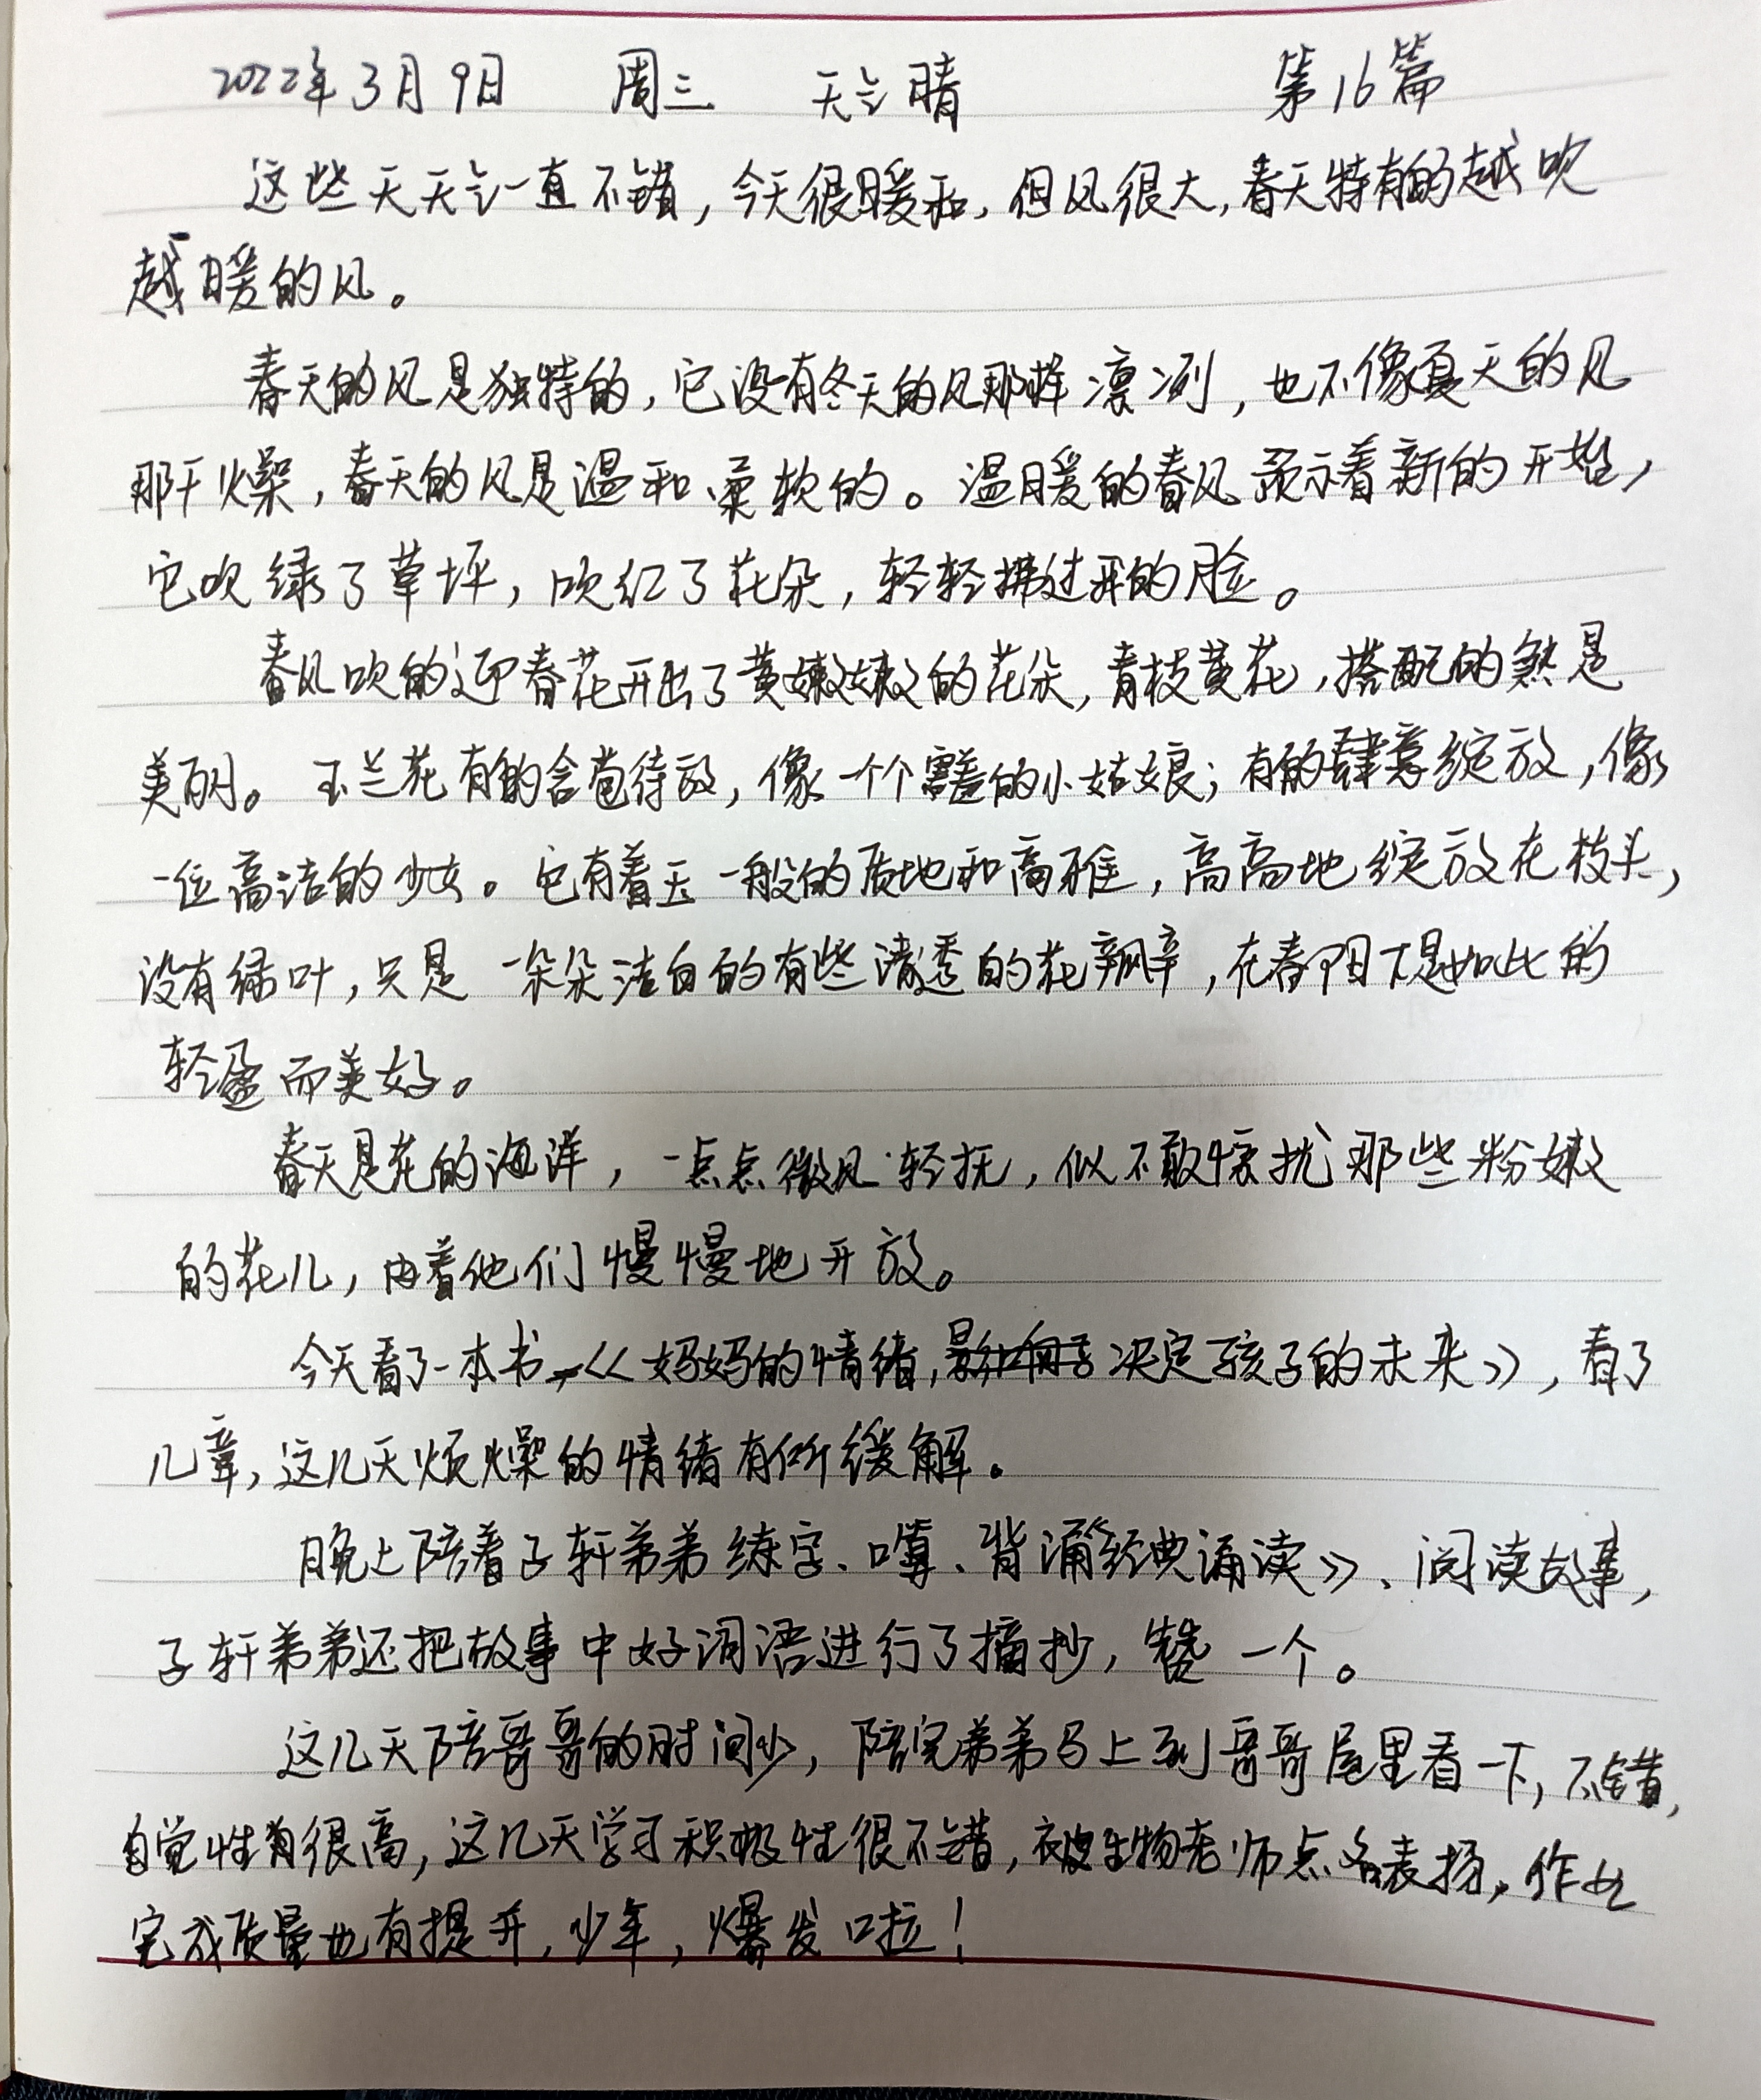 2022年3月9日 周三 天气晴 第16篇
这些天天气一直不错，今天很暖和，但风很大，春天特有的越吹
越暖的风。
春天的风是独特的，它没有冬天的风那样凛冽，也不像夏天的风
那干燥，春天的风是温和、柔软的。温暖的春风预示着新的开始，
它吹绿了草坪，吹红了花朵，轻轻拂过我的脸。
春风吹的迎春花开出了黄嫩嫩的花朵，青枝黄花，搭配的煞是
美丽。玉兰花有的含苞待放，像一个个害羞的小姑娘；有的肆意绽放，像
一位高洁的少女。它有着玉一般的质地和高雅，高高地绽放在枝头，
没有绿叶，只是一朵朵洁白的有些清透的花瓣，在春阳下是如此的
轻盈而美好。
春天是花的海洋，一点点微风轻抚，似不敢惊扰那些粉嫩
的花儿，由着他们慢慢地开放。
今天看了一本书《妈妈的情绪，决定孩子的未来》，看了
几章，这几天烦燥的情绪有所缓解。
晚上陪着子轩弟弟练字、口算、背诵《经典诵读》、阅读故事，
子轩弟弟还把故事中好词语进行了摘抄，赞一个。
这几天陪哥哥的时间少，陪完弟弟马上到哥哥屋里看一下，不错，
自觉性有很高，这几天学习积极性很不错，被生物老师点名表扬，作业
完成质量也有提升，少年，爆发啦！